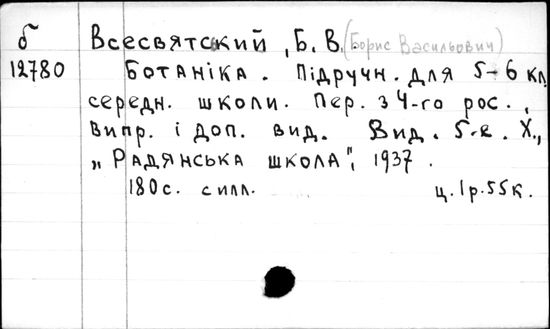 б Всесвятский, Б. В. (Борис Васильович)
12780 Ботаніка. Підручн. для 5-6 кл.
середн. школи. Пер. з 4-го рос.,
випр. і доп. вид. Вид. 5-е. Х.,
"Радянська школа", 1937.
180 с. силл. ц. 1р.55к.